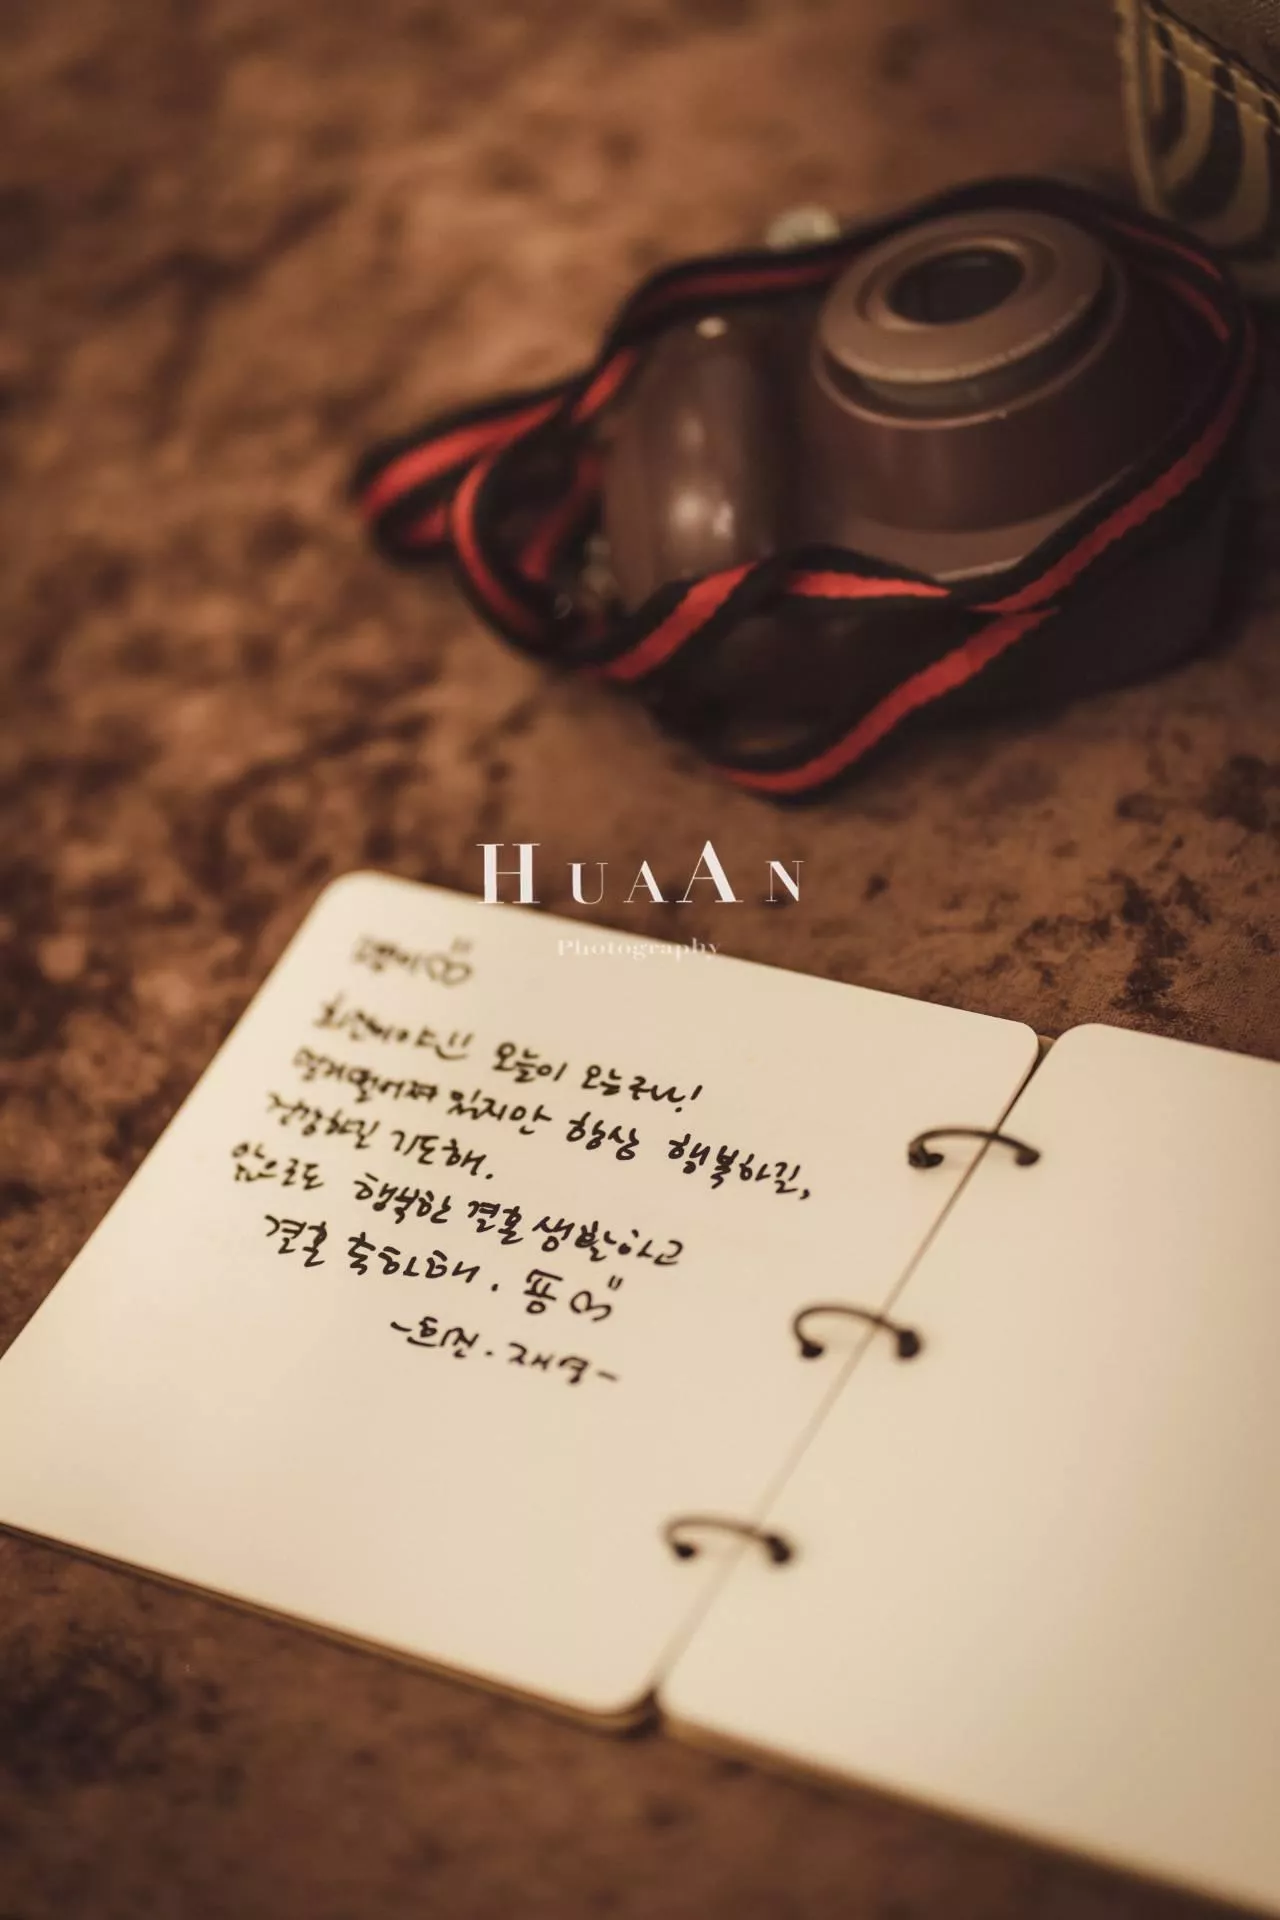 HUAAN
Photography
오늘이 오늘구나!
멀게떨어져 있지만 항상 행복하길,
건강하길 기도해.
앞으로도 행복한 결혼생활하고
결혼 축하해. 뿅